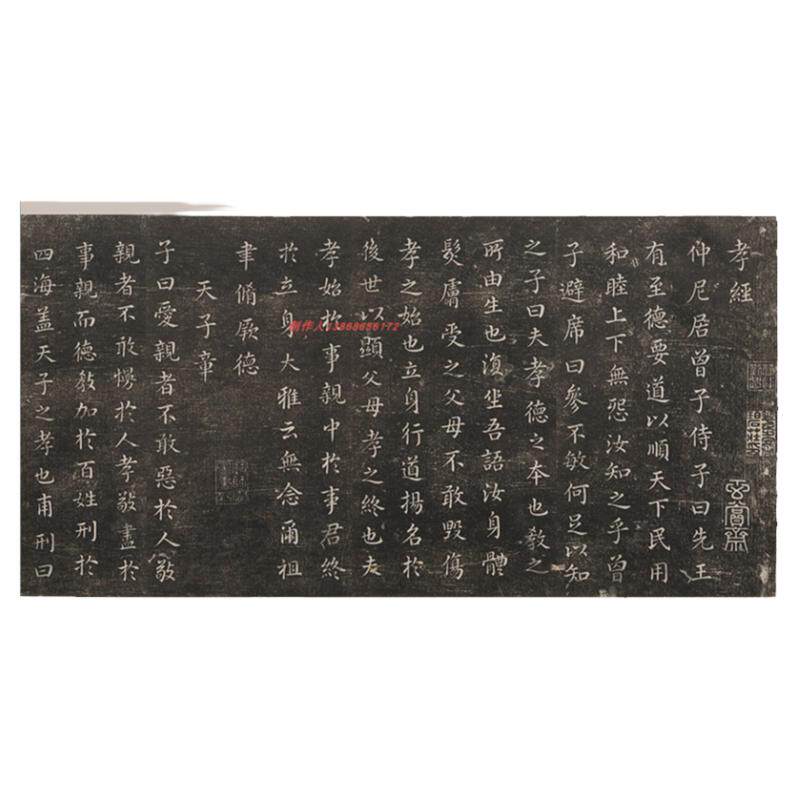 孝經
仲尼居曾子侍子曰先王
有至德要道以順天下民用
和睦上下無怨汝知之乎曾
子避席曰參不敏何足以知
之子曰夫孝德之本也教之
所由生也復坐吾語汝身體
髮膚受之父母不敢毀傷
孝之始也立身行道揚名於
後世以顯父母孝之終也夫
孝始於事親中於事君終
於立身大雅云無念爾祖
聿脩厥德
天子章
子曰愛親者不敢惡於人敬
親者不敢慢於人孝敬盡於
事親而德教加於百姓刑於
四海蓋天子之孝也甫刑曰
制作人13868656172